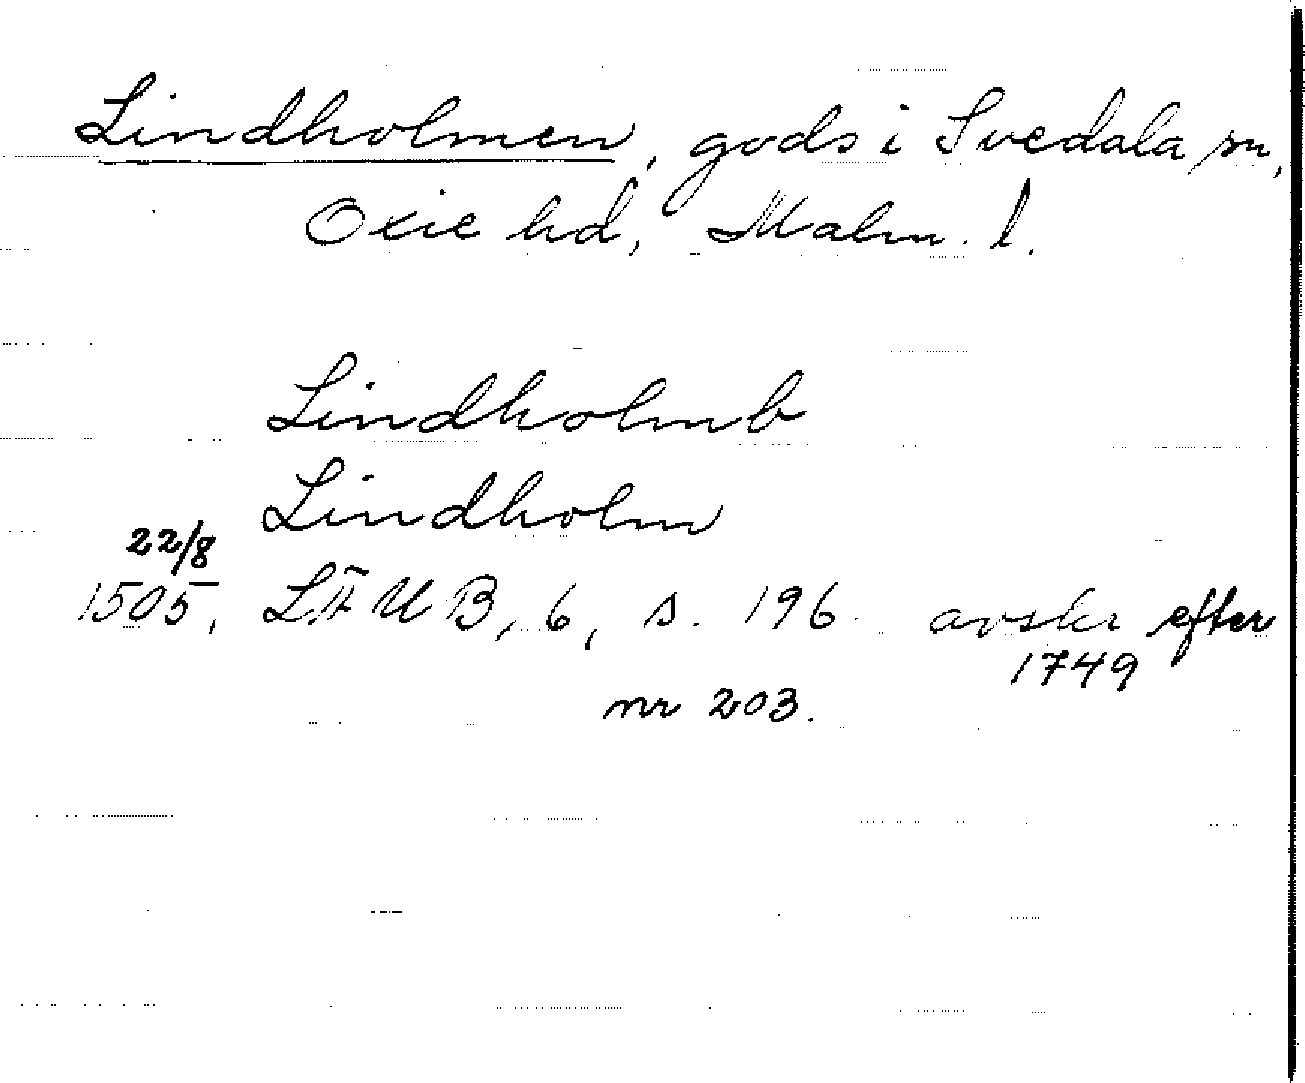 Lindholmen, gods i Svedala sn,
Oxie hd, Malm. l.
Lindholmb
Lindholm
22/8
1505, LÄUB, 6, s. 196. avskr efter
1749
nr 203.